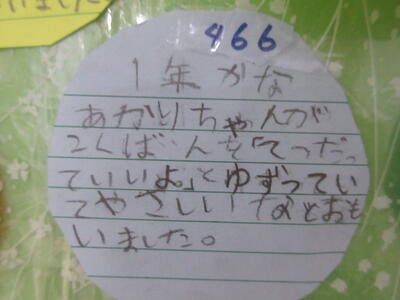 いました
466
1年 かな
あかりちゃんが
こくばんを「てつだっ
ていいよ」とゆずってい
てやさしいなとおも
いました。